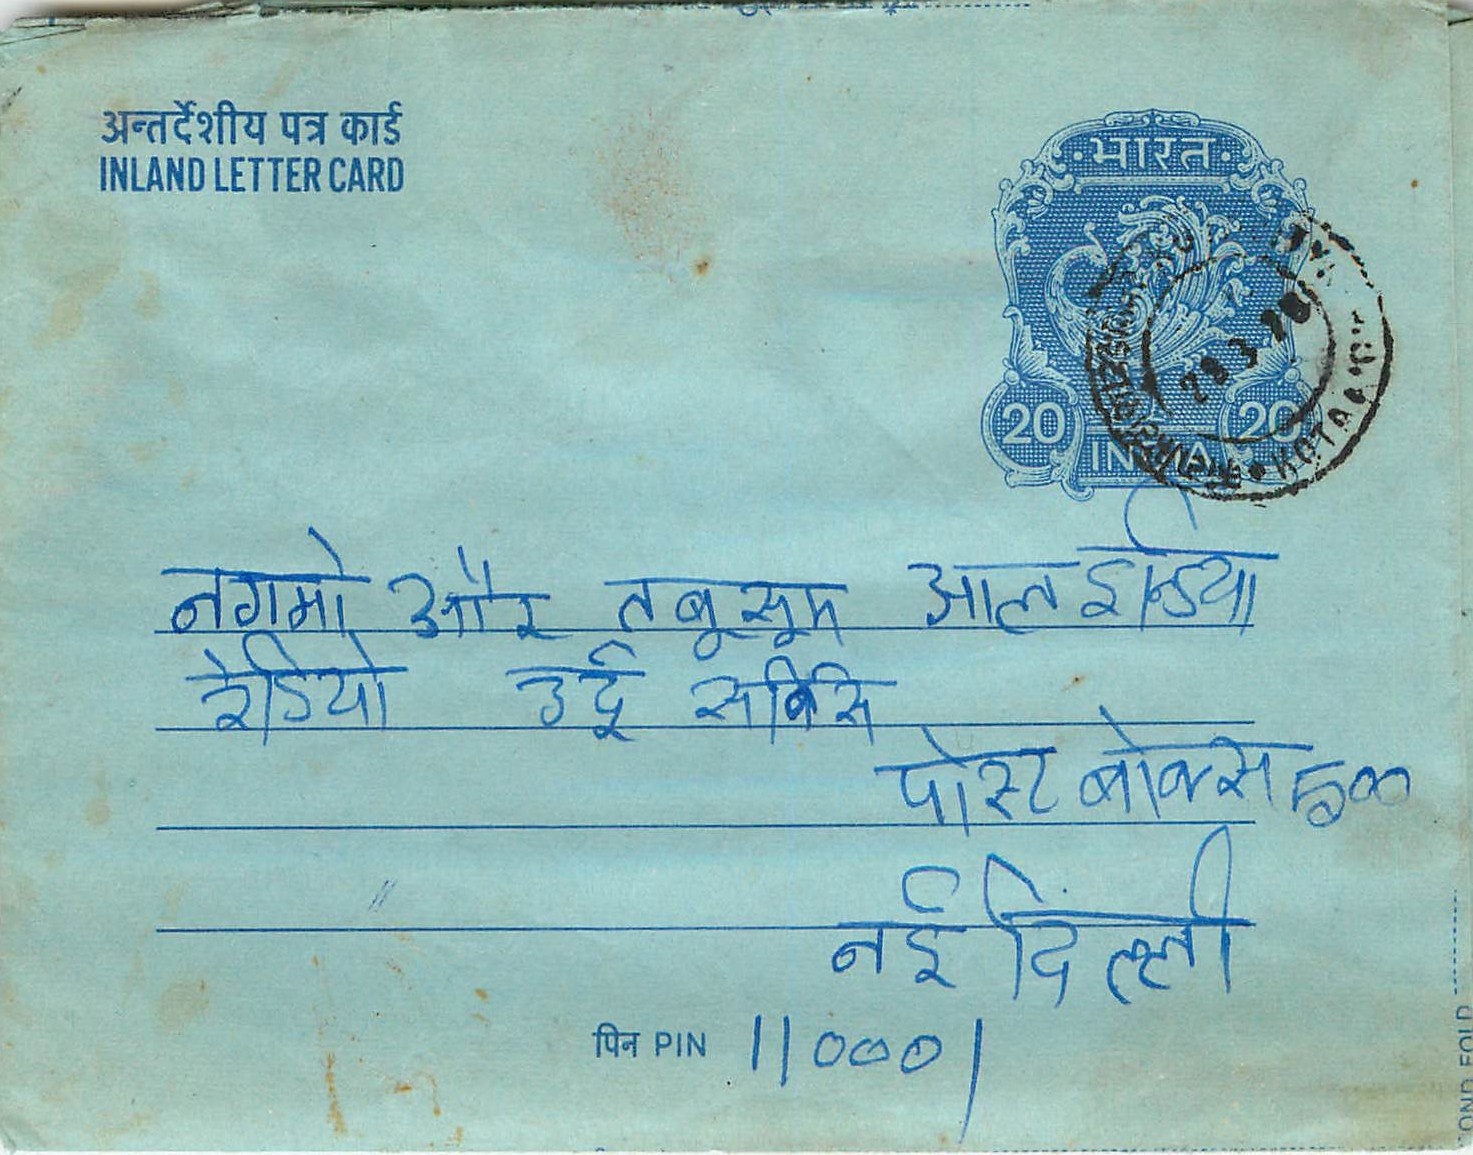 अन्तर्देशीय पत्र कार्ड
INLAND LETTER CARD
भारत
20 20
INDIA
KOTA
नगमो और तबूसूम आल इन्डिया
रेडियो उर्दू सर्विसि
पोस्ट बोक्स 500
नई दिल्ली
पिन PIN 110001
OND FOLD